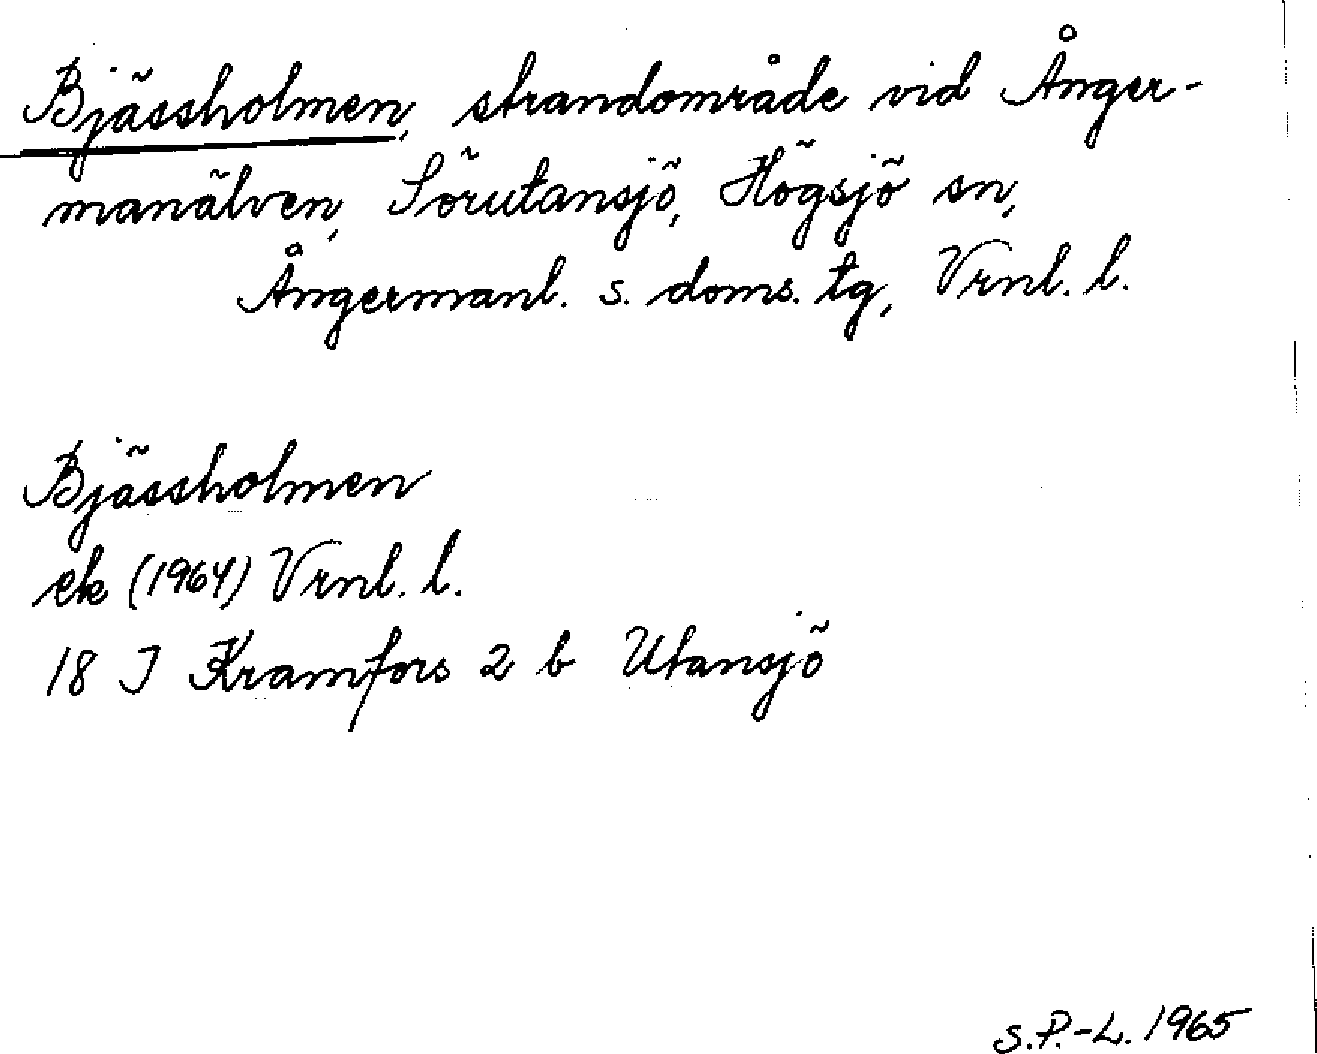 Bjässholmen, strandområde vid Ånger-
manälven, Sörutansjö, Högsjö sn,
Ångermanl. s. doms. tg, Vrnl. l.
Bjässholmen
ek (1964) Vrnl. l.
18 J Kramfors 2 b Utansjö
S.P.-L. 1965